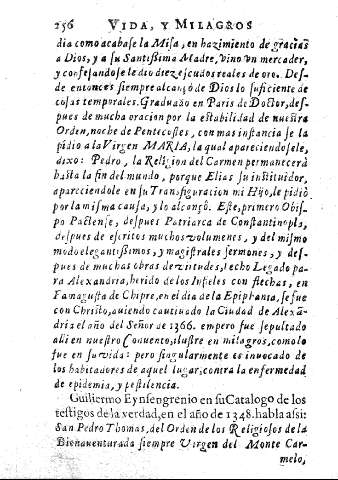 256 VIDA, Y MILAGROS
dia como acabase la Misa, en hazimiento de gracias
a Dios, y a su Santissima Madre, vino vn mercader,
y confesandose le dio diez escudos reales de oro. Des-
de entonces siempre alcançò de Dios lo suficiente de
cosas temporales. Graduado en Paris de Doctor, des-
pues de mucha oracion por la estabilidad de nuestra
Orden, noche de Pentecostes, con mas instancia se la
pidio a la Virgen MARIA, la qual apareciendosele,
dixo: Pedro, la Religion del Carmen permanecerà
hasta la fin del mundo, porque Elias su instituidor,
apareciendole en su Transfiguracion mi Hijo, le pidiò
por la misma causa, y lo alcançò. Este, primero Obis-
po Pactense, despues Patriarca de Constantinopla,
despues de escritos muchos volumenes, y del mismo
modo elegantissimos, y magistrales sermones, y des-
pues de muchas obras de virtudes, hecho Legado pa-
ra Alexandria, herido de los Infieles con flechas, en
Famagusta de Chipre, en el dia de la Epiphania, se fue
con Christo, auiendo cautiuado la Ciudad de Alexã-
dria el año del Señor de 1366. empero fue sepultado
alli en nuestro Conuento, ilustre en milagros, como lo
fue en su vida: pero singularmente es inuocado de
los habitadores de aquel lugar, contra la enfermedad
de epidemia, y pestilencia.
Guillermo Eynsengrenio en su Catalogo de los
testigos de la verdad, en el año de 1348. habla assi:
San Pedro Thomas, del Orden de los Religiosos de la
Bienauenturada siempre Virgen del Monte Car-
melo,